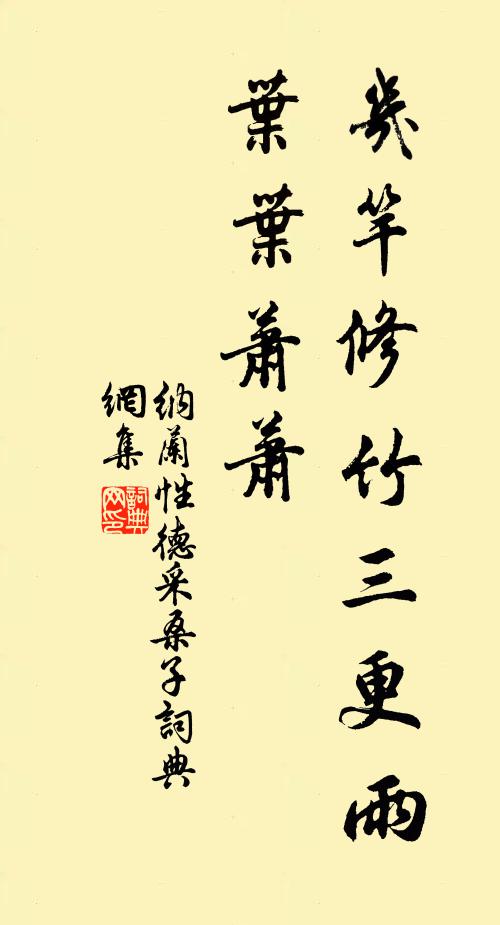 幾竿修竹三更雨
葉葉蕭蕭
納蘭性德采桑子詞典
網集
詞典
网印